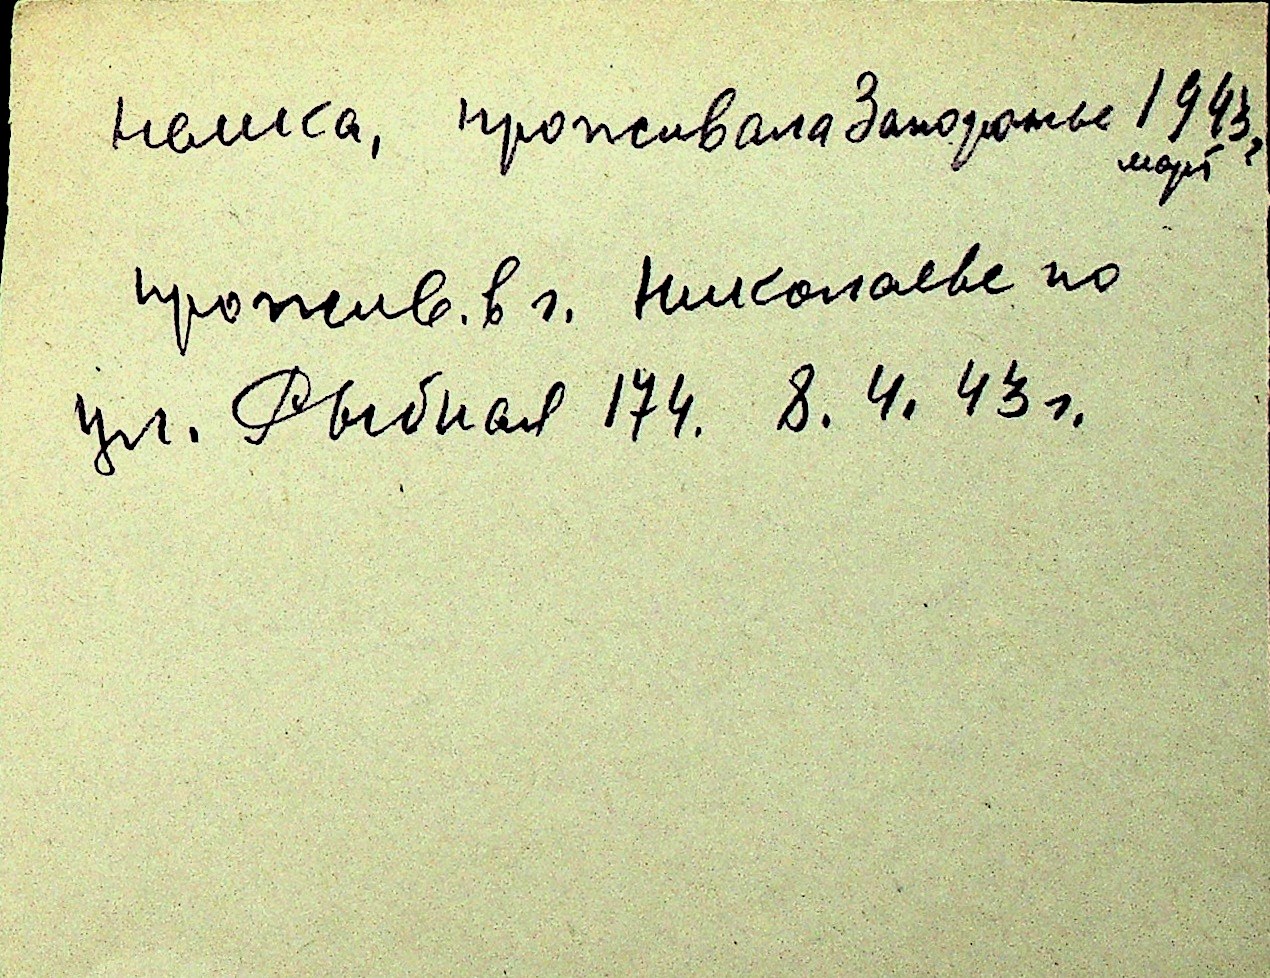 немка, проживала Запорожье 1943 г
март
прожив. в г. Николаеве по
ул. Рыбная 174. 8. 4. 43 г.